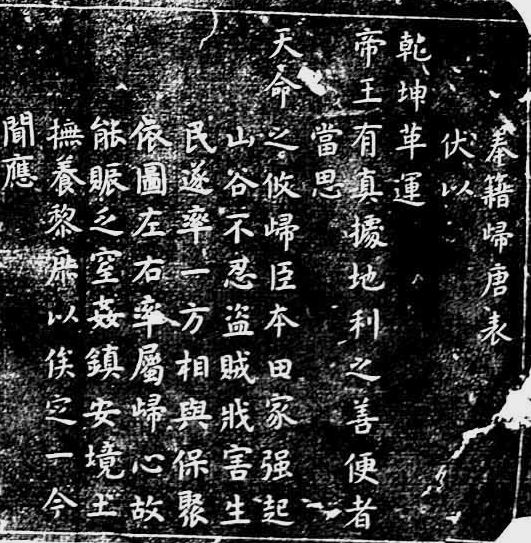 奉籍歸唐表
伏以
乾坤革運
帝王有真據地利之善便者
當思
天命之攸歸臣本田家强起
山谷不忍盜賊戕害生
民遂率一方相與保聚
依圖左右率屬歸心故
能賑乏窒姦鎮安境土
撫養黎庶以俟定一今
聞應